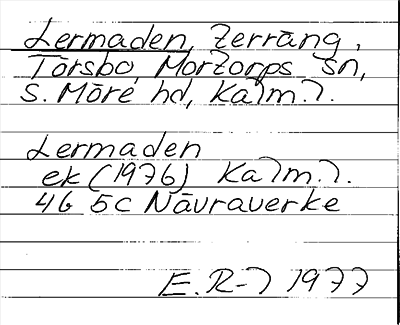 Lermaden, Zerräng,
Törsbo, Mortorps sn,
S. Möre hd, Kalm. l.
Lermaden
ek (1976) Kalm. l.
4G 5c Nävraverke
E. R-l 1977